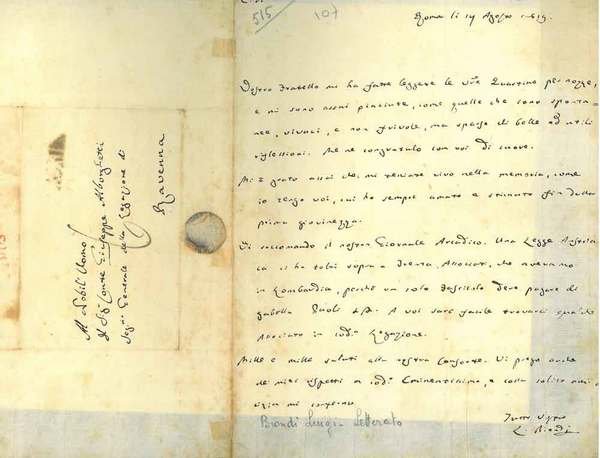 515
107
Roma li 14 Agosto 1819.
Vostro fratello mi ha fatto leggere le vostre Quartine per nozze,
e mi sono assai piaciute, come quelle che sono sponta=
nee, vivaci, e non frivole, ma sparse di belle ed utili
riflessioni. Me ne congratulo con voi di cuore.
Mi è grato assai che mi teniate vivo nella memoria, come
io tengo voi, cui ho sempre amato e stimato fin dalla
prima giovinezza.
Vi raccomando il nostro Giornale Arcadico. Una Legge Austria
ca ci ha tolti sopra a trenta Associati, che avevamo
in Lombardia, perché un solo fascicolo deve pagare di
gabella Paoli A voi sarà facile trovarci qualche
Associato in Legazione.
Mille e mille saluti alla vostra Consorte. Vi prego anche
de' miei rispetti a Eminentissimo, e colla solita ami
cizia mi confermo
Tutto Vostro
L. Biondi
Biondi Luigi Letterato
Al Nobil Uomo
Il Sig. Conte Giuseppe Alborghetti
Seg. Generale della Legazione di
Ravenna